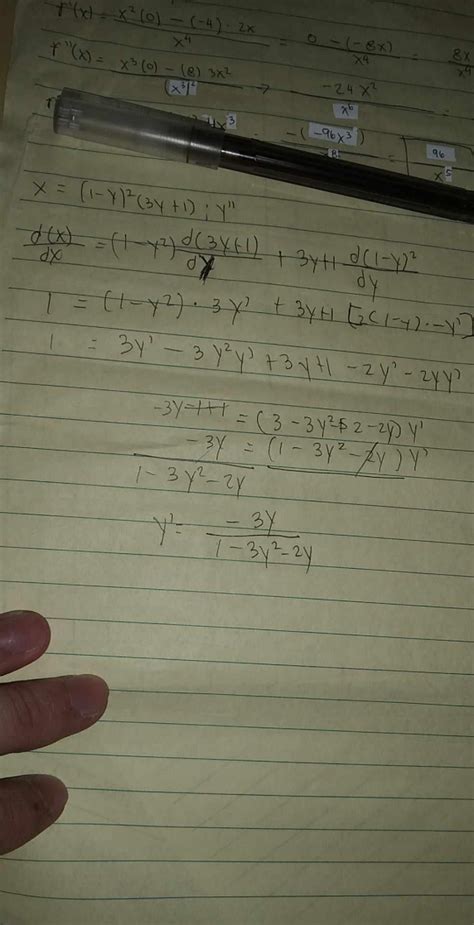 r'(x) = x²(0) - (-4) · 2x / x⁴ = 0 - (-8x) / x⁴ = 8x
r''(x) = x³(0) - (8) 3x² / (x³)² → -24x² / x⁶ =
4x³ = -(-96x³) / 8 = 96 / x⁵
x = (1-y)²(3y+1) ; y''
d(x)/dx = (1-y²) d(3y+1)/dy + 3y+1 d(1-y)²/dy
1 = (1-y²) · 3y' + 3y+1 [2(1-y) · -y']
1 = 3y' - 3y²y' + 3y+1 - 2y' - 2yy'
-3y-1+1 = (3 - 3y² 2 - 2y) y'
-3y = (1 - 3y² - 2y) y'
1 - 3y² - 2y
y' = -3y / 1 - 3y² - 2y